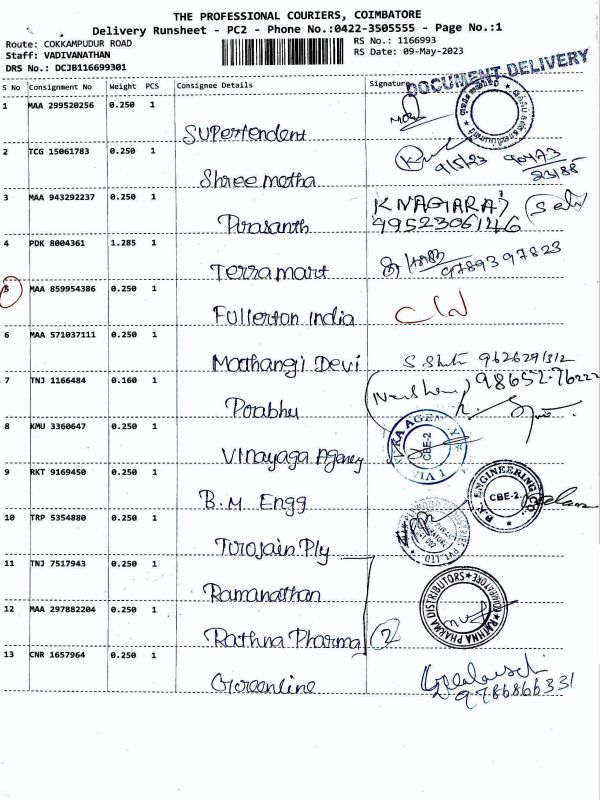 THE PROFESSIONAL COURIERS, COIMBATORE
Delivery Runsheet - PC2 - Phone No.:0422-3505555 - Page No.:1
Route: COKKAMPUDUR ROAD
Staff: VADIVANATHAN
DRS No.: DCJB116699301
RS No.: 1166993
RS Date: 09-May-2023
DOCUMENT DELIVERY
S No Consignment No Weight PCS Consignee Details Signature
1 MAA 299520256 0.250 1
Supertendent
2 TCG 15061783 0.250 1
Shree motha
9/5/23
3 MAA 943292237 0.250 1
Prasanth
K NAGARAJ
9952306146
4 PDK 8004361 1.285 1
Terramart
9789397823
5 MAA 859954386 0.250 1
Fullerton India
6 MAA 571037111 0.250 1
Mathangi Devi
7 TNJ 1166484 0.160 1
Prabhu
8 KMU 3360647 0.250 1
Vinayaga Agency
CBE-2
9 RKT 9169450 0.250 1
B.M. Engg
CBE-2.
10 TRP 5354880 0.250 1
Turojain Ply
11 TNJ 7517943 0.250 1
Ramanathan
12 MAA 297882204 0.250 1
Rathna Pharma
2
RATHNA PHARMA DISTRIBUTORS * COIMBATORE *
13 CNR 1657964 0.250 1
Greenline
9786866331